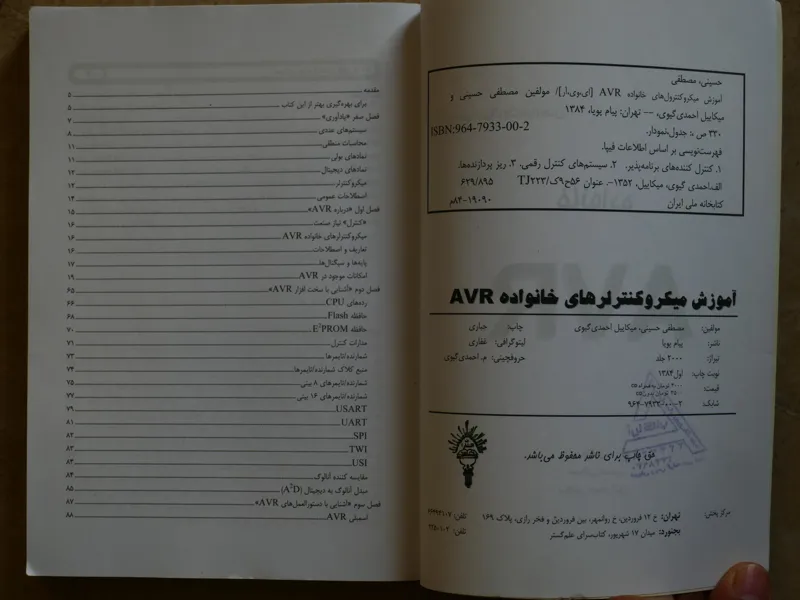 حسینی، مصطفی
آموزش میکروکنترولهای خانواده AVR [ای،وی،ار]/ مولفین مصطفی حسینی و
میکاییل احمدی‌گیوی. — تهران: پیام پویا، ۱۳۸۴
۳۳۰ ص.: جدول،نمودار.
ISBN:964-7933-00-2
فهرست‌نویسی بر اساس اطلاعات فیپا.
۱. کنترل کننده‌های برنامه‌پذیر. ۲. سیستم‌های کنترل رقمی. ۳. ریز پردازنده‌ها.
الف.احمدی گیوی، میکاییل، ۱۳۵۲-. عنوان
۵۶ح۹ک/TJ۲۲۳ ۶۲۹/۸۹۵
کتابخانه ملی ایران ۱۹۰۹۰-۸۴م
آموزش میکروکنترلرهای خانواده AVR
مولفین: مصطفی حسینی، میکاییل احمدی‌گیوی چاپ: جباری
ناشر: پیام پویا لیتوگرافی: غفاری
تیراژ: ۲۰۰۰ جلد حروفچینی: م. احمدی‌گیوی
نوبت چاپ: اول ۱۳۸۴
قیمت: تومان به‌همراه CD
تومان بدون CD
شابک: ۲-۰۰-۷۹۳۳-۹۶۴
حق چاپ برای ناشر محفوظ می‌باشد.
مرکز پخش: تهران: خ ۱۲ فروردین، خ روانمهر، بین فروردین و فخر رازی، پلاک ۱۶۹ تلفن:
بجنورد: میدان ۱۷ شهریور، کتاب‌سرای علم‌گستر تلفن:
مقدمه ۵
برای بهره‌گیری بهتر از این کتاب ۵
فصل صفر «یادآوری» ۷
سیستم‌های عددی ۸
محاسبات منطقی ۱۱
نمادهای بولی ۱۱
نمادهای دیجیتال ۱۲
میکروکنترلر ۱۲
اصطلاحات عمومی ۱۴
فصل اول «درباره AVR» ۱۵
«کنترل» نیاز صنعت ۱۶
میکروکنترلرهای خانواده AVR ۱۶
تعاریف و اصطلاحات ۱۶
پایه‌ها و سیگنال‌ها ۱۷
امکانات موجود در AVR ۱۹
فصل دوم «آشنایی با سخت افزار AVR» ۶۵
رده‌های CPU ۶۶
حافظه Flash ۶۸
حافظه E²PROM ۷۰
مدارات کنترل ۷۱
شمارنده/تایمرها ۷۳
منبع کلاک شمارنده/تایمرها ۷۴
شمارنده/تایمرهای ۸ بیتی ۷۵
شمارنده/تایمرهای ۱۶ بیتی ۷۷
USART ۷۹
UART ۸۱
SPI ۸۲
TWI ۸۳
USI ۸۴
مقایسه کننده آنالوگ ۸۴
مبدل آنالوگ به دیجیتال (A²D) ۸۵
فصل سوم «آشنایی با دستورالعمل‌های AVR» ۸۷
اسمبلی AVR ۸۸